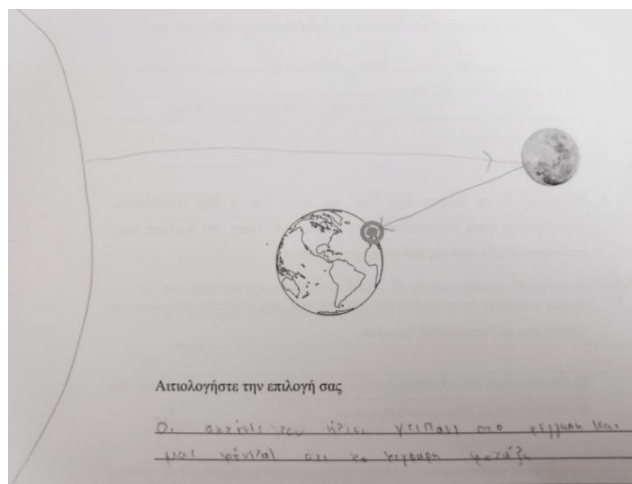 Αιτιολογήστε την επιλογή σας
Οι ακτήνες του ήλιου χτιπάνε στο φεγγαρη και
μας φένεται οτι το φεγγαρη φοτάζη